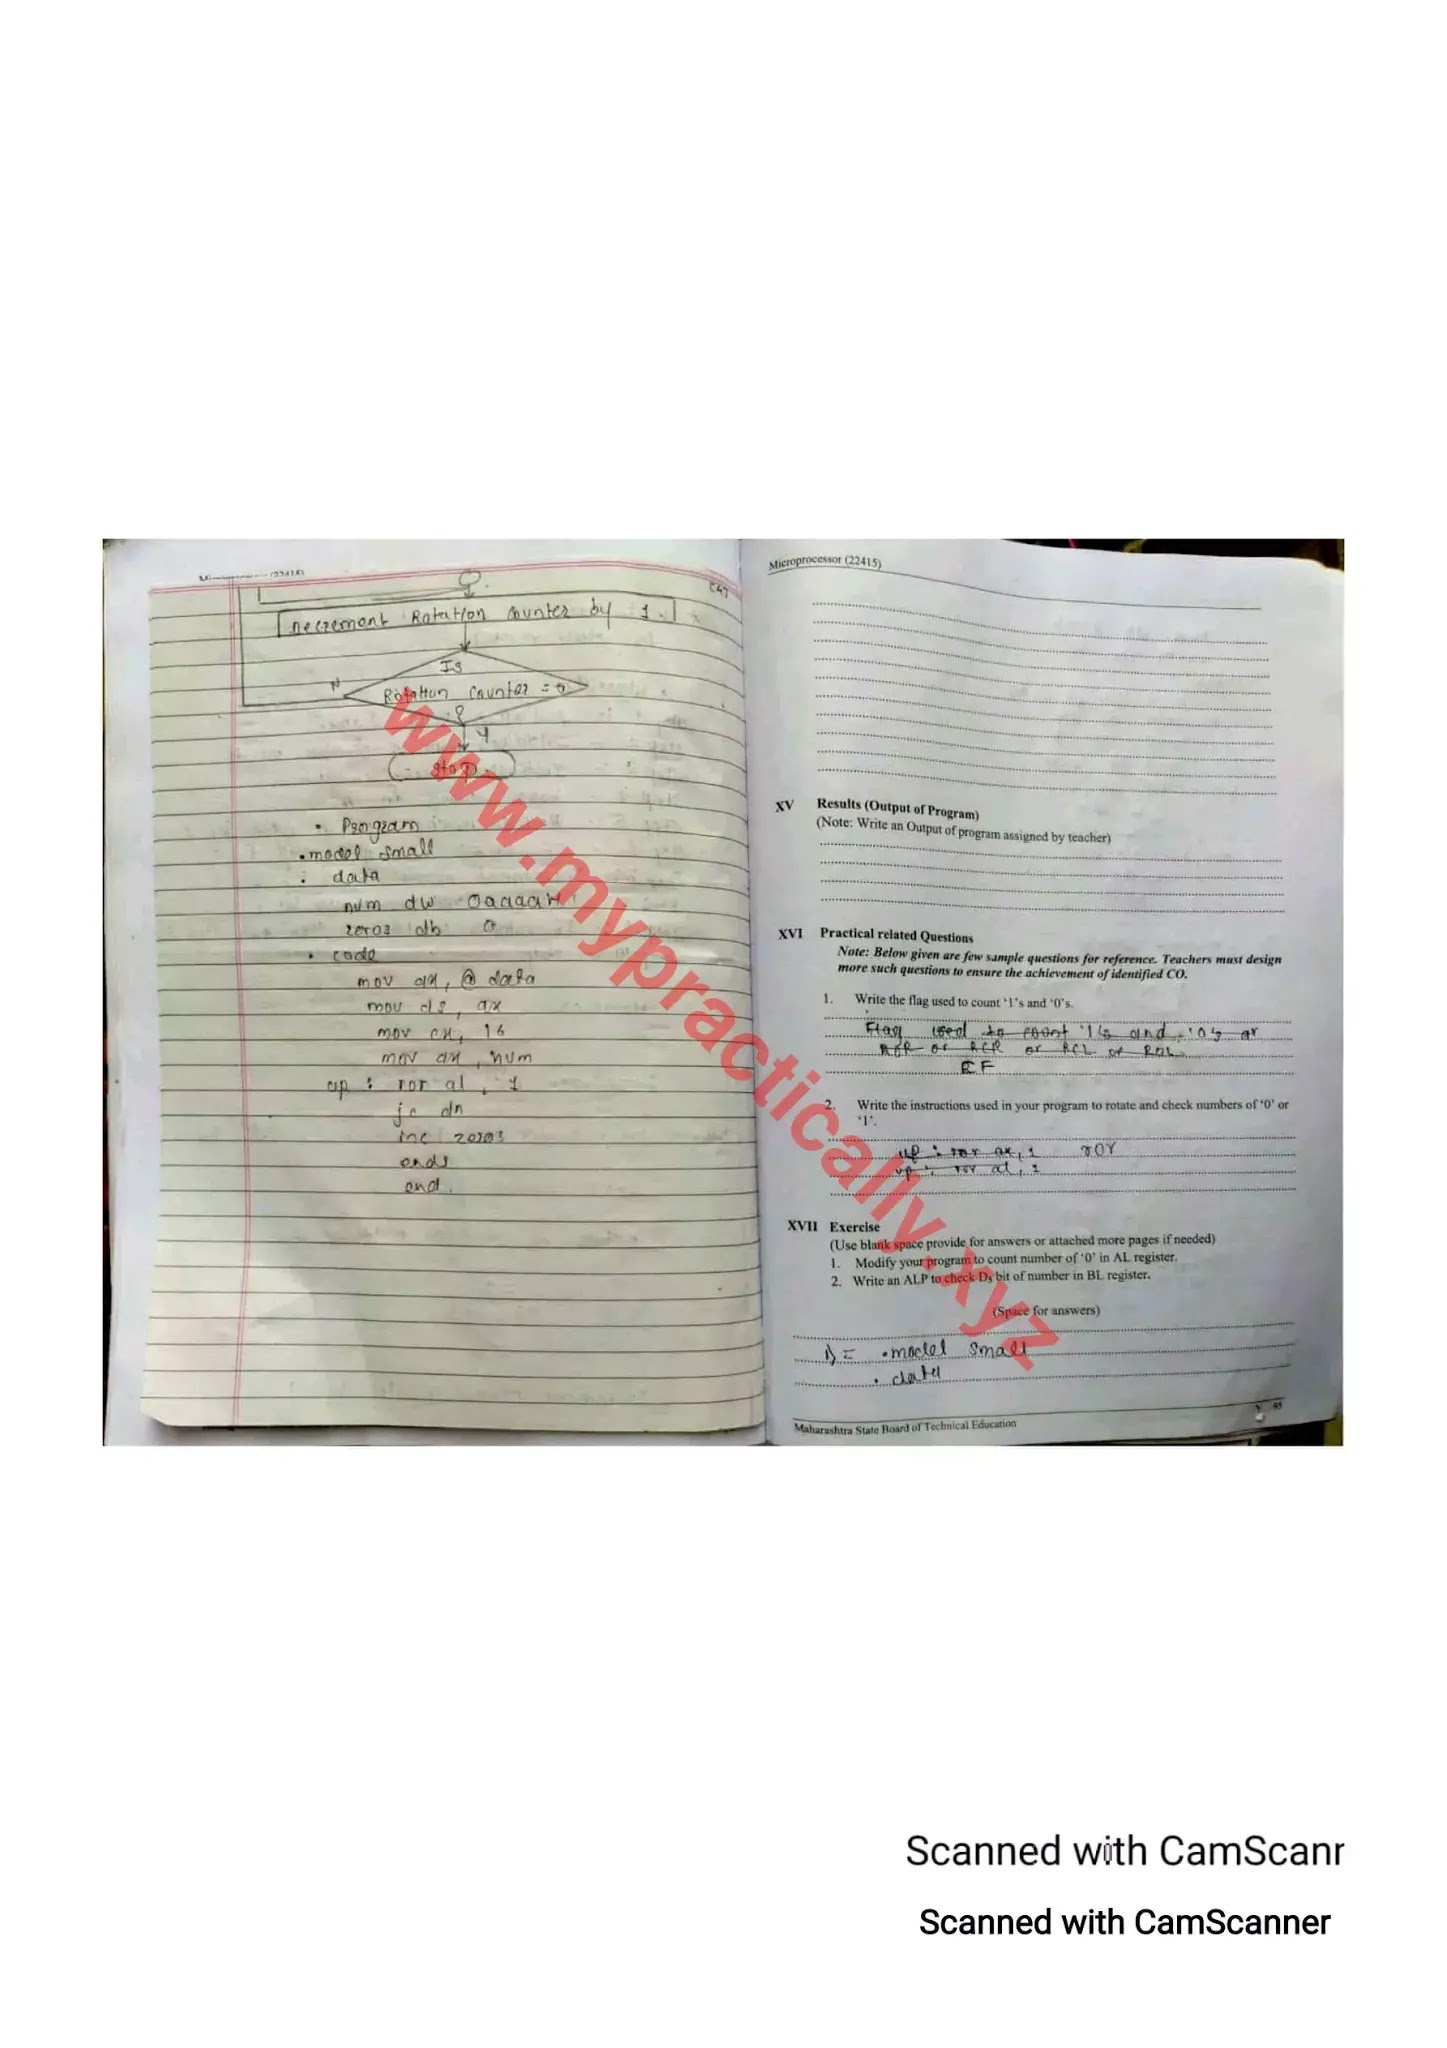 (22415)
Decrement Rotation Counter by 1.
Is
N
Rotation Counter = 0
?
Y
Stop
• Program
.model small
. data
num dw 0aaaaH
zeros db 0
. code
mov ax, @ data
mov ds, ax
mov cx, 16
mov ax, num
up : ror al, 1
jc dn
inc zeros
ends
end.
Microprocessor (22415)
XV Results (Output of Program)
(Note: Write an Output of program assigned by teacher)
XVI Practical related Questions
Note: Below given are few sample questions for reference. Teachers must design
more such questions to ensure the achievement of identified CO.
1. Write the flag used to count '1's and '0's.
Flag used to count '1's and '0's ar
ROR or RCR or RCL or ROL.
CF
2. Write the instructions used in your program to rotate and check numbers of '0' or
'1'.
up : ror ax, 1 ror
up : ror al, 1
XVII Exercise
(Use blank space provide for answers or attached more pages if needed)
1. Modify your program to count number of '0' in AL register.
2. Write an ALP to check D5 bit of number in BL register.
(Space for answers)
1) = .model small
. data
Maharashtra State Board of Technical Education 95
www.mypractically.xyz
Scanned with CamScanr
Scanned with CamScanner